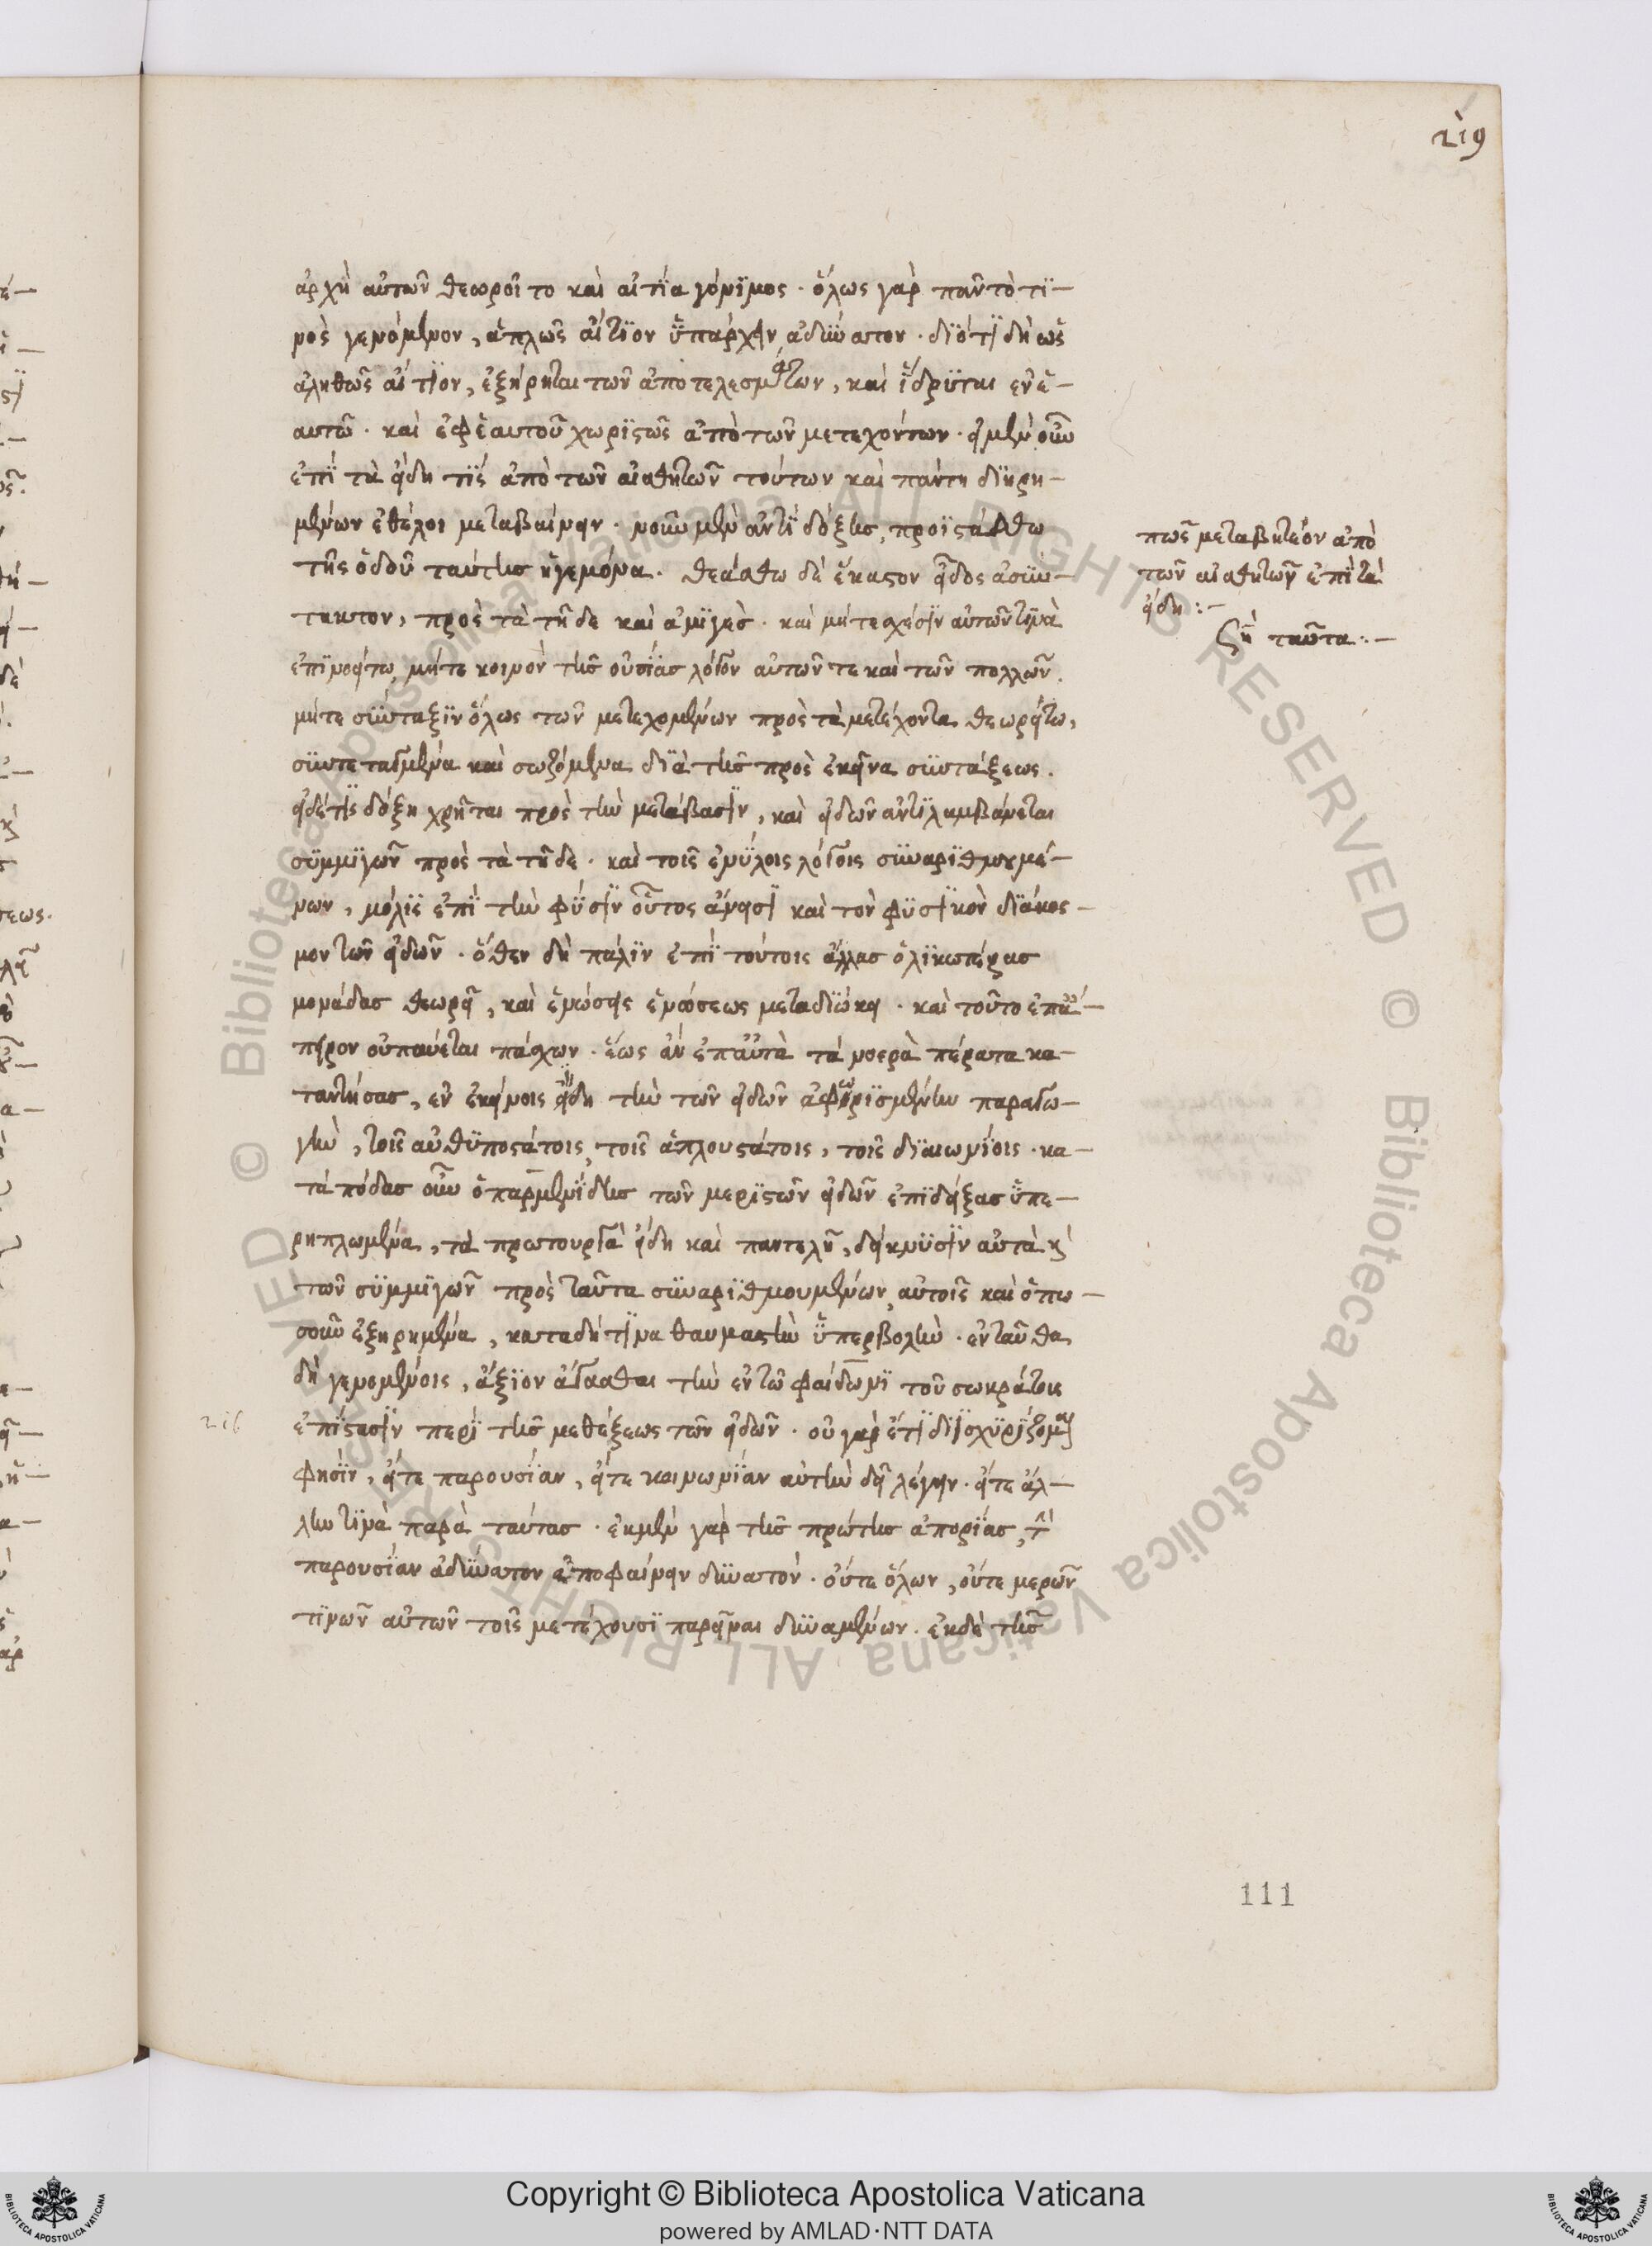 219
ἀρχὴ αὐτῶν θεωροῖτο καὶ αἰτία γόνϊμος · ὅλως γὰρ πᾶν τὸ τϊ—
νὸς γενόμενον, ἁπλῶς αἴτϊον ὑπάρχειν ἀδύνατον · δϊότι δὴ ὡς
ἀληθῶς αἴτϊον, ἐξῄρηται τῶν ἀποτελεσμάτων, καὶ ἵδρυται ἐν ἑ—
αυτῷ · καὶ ἐφ' ἑαυτοῦ χωρϊστῶς ἀπὸ τῶν μετεχόντων · εἰ μὲν οὖν
ἐπὶ τὰ εἴδη τὶς ἀπὸ τῶν αἰσθητῶν τούτων καὶ πάντη διῃρη—
μένων ἐθέλοι μεταβαίνειν · νοῦν μὲν ἀντὶ δόξης, προϊστάσθω
τῆς ὁδοῦ ταύτης ἡγεμόνα · θεάσθω δὲ ἕκαστον εἶδος ἀσύν—
τακτον, πρὸς τὰ τῇδε καὶ ἀμϊγὲς · καὶ μήτε σχέσϊν αὐτῶν τϊνὰ
ἐπϊνοείτω, μήτε κοινὸν τῆς οὐσίας λόγον αὐτῶν τε καὶ τῶν πολλῶν.
μήτε σύνταξϊν ὅλως τῶν μετεχομένων πρὸς τὰ μετέχοντα θεωρείτω,
συντεταγμένα καὶ σωζόμενα δϊὰ τῆς πρὸς ἐκεῖνα συντάξεως.
εἰ δέ τις δόξῃ χρῆται πρὸς τὴν μετάβασϊν, καὶ εἰδῶν ἀντιλαμβάνεται
συμμϊγῶν πρὸς τὰ τῇδε · καὶ τοῖς ἐνύλοις λόγοις συναρϊθμουμέ—
νων, μόλϊς ἐπὶ τὴν φύσϊν οὗτος ἄνεισι καὶ τὸν φυσϊκὸν δϊάκοσ—
μον τῶν εἰδῶν · ὅθεν δὴ πάλϊν ἐπὶ τούτοις ἄλλας ὁλϊκωτέρας
μονάδας θεωρεῖ, καὶ ἑνώσεις ἑνώσεως μεταδϊώκει · καὶ τοῦτο ἐπ' ἄ—
πειρον οὐ παύεται πάσχων · ἕως ἂν ἐπ' αὐτὰ τὰ νοερὰ πέρατα κα—
ταντήσας, ἐν ἐκείνοις εἴδη τὴν τῶν εἰδῶν ἀφωρϊσμένην παραγω—
γὴν, τοῖς αὐθυποστάτοις, τοῖς ἁπλουστάτοις, τοῖς δϊαιωνίοις · κα—
τὰ πόδας οὖν ὁ παρμενίδης τῶν μερϊστῶν εἰδῶν ἐπϊδείξας ὑπε—
ρηπλωμένα, τὰ πρωτουργὰ εἴδη καὶ παντελῆ, δείκνυσϊν αὐτὰ κ̀
τῶν συμμϊγῶν πρὸς ταῦτα συναρϊθμουμένων, αὐτοῖς καὶ ὁπω—
σοῦν ἐξῃρημένα, κατὰ δή τϊνα θαυμαστὴν ὑπερβολὴν · ἐνταῦθα
δὴ γενομένοις, ἄξϊον ἀγᾶσθαι τὴν ἐν τῷ φαίδωνϊ τοῦ σωκράτους
216
ἐπίστασϊν περὶ τῆς μεθέξεως τῶν εἰδῶν · οὐ γὰρ ἔτι διϊσχυρίζομαι
φησὶν, εἴτε παρουσίαν, εἴτε κοινωνίαν αὐτὴν δεῖ λέγειν · εἴτε ἄλ—
λην τϊνὰ παρὰ ταύτας · ἐκ μὲν γὰρ τῆς πρώτης ἀπορίας, τὴν
παρουσίαν ἀδύνατον ἀποφαίνειν δυνατόν · οὔτε ὅλων, οὔτε μερῶν
τϊνῶν αὐτῶν τοῖς μετέχουσϊ παρεῖναι δυναμένων · ἐκ δὲ τῆς
πῶς μεταβητέον ἀπὸ
τῶν αἰσθητῶν ἐπὶ τὰ
εἴδη :—
ζή ταῦτα :—
111
Copyright © Biblioteca Apostolica Vaticana
powered by AMLAD·NTT DATA
© Biblioteca Apostolica Vaticana ALL RIGHTS RESERVED © Biblioteca Apostolica Vaticana ALL RIGHTS RESERVED